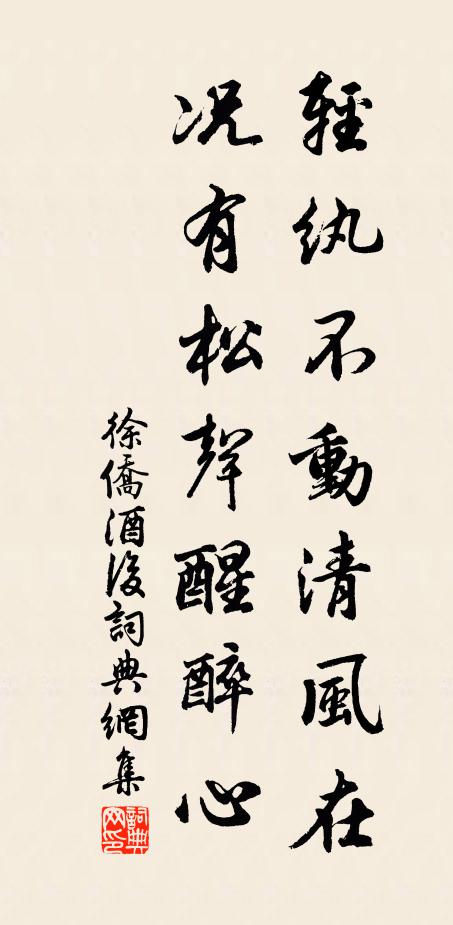 輕紈不動清風在
況有松聲醒醉心
徐僑酒後詞典網集
詞典網印